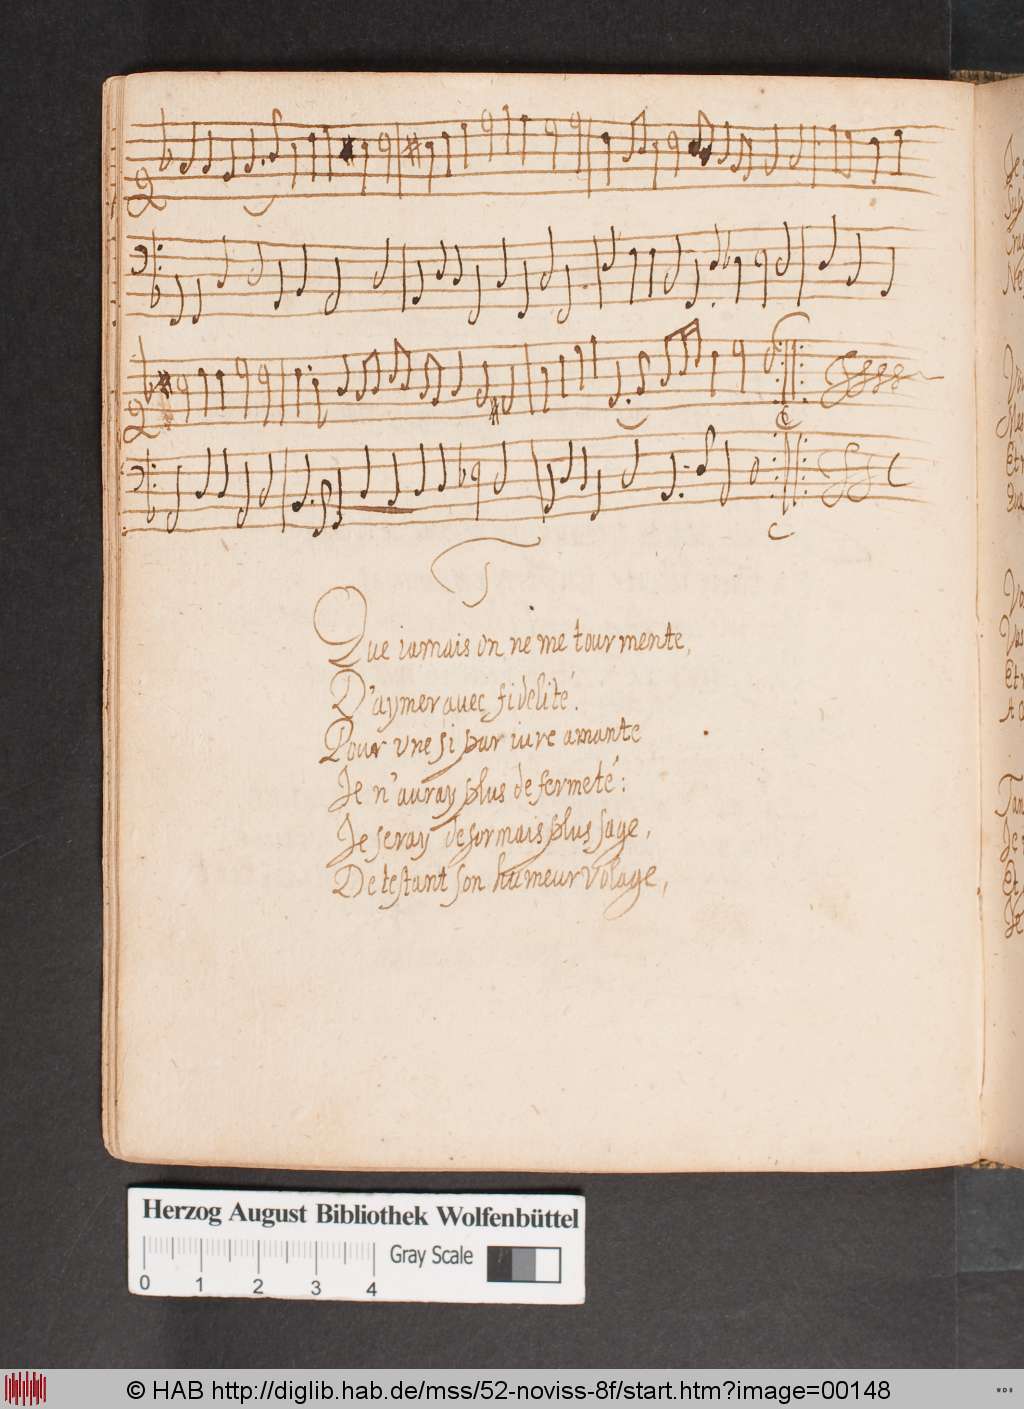 Que iamais on ne me tourmente,
D'aymer avec fidelité.
Pour vne si pariure amante
Je n'auray plus de fermeté:
Je seray desormais plus sage,
Detestant son humeur volage,
Herzog August Bibliothek Wolfenbüttel
Gray Scale
0 1 2 3 4
© HAB http://diglib.hab.de/mss/52-noviss-8f/start.htm?image=00148